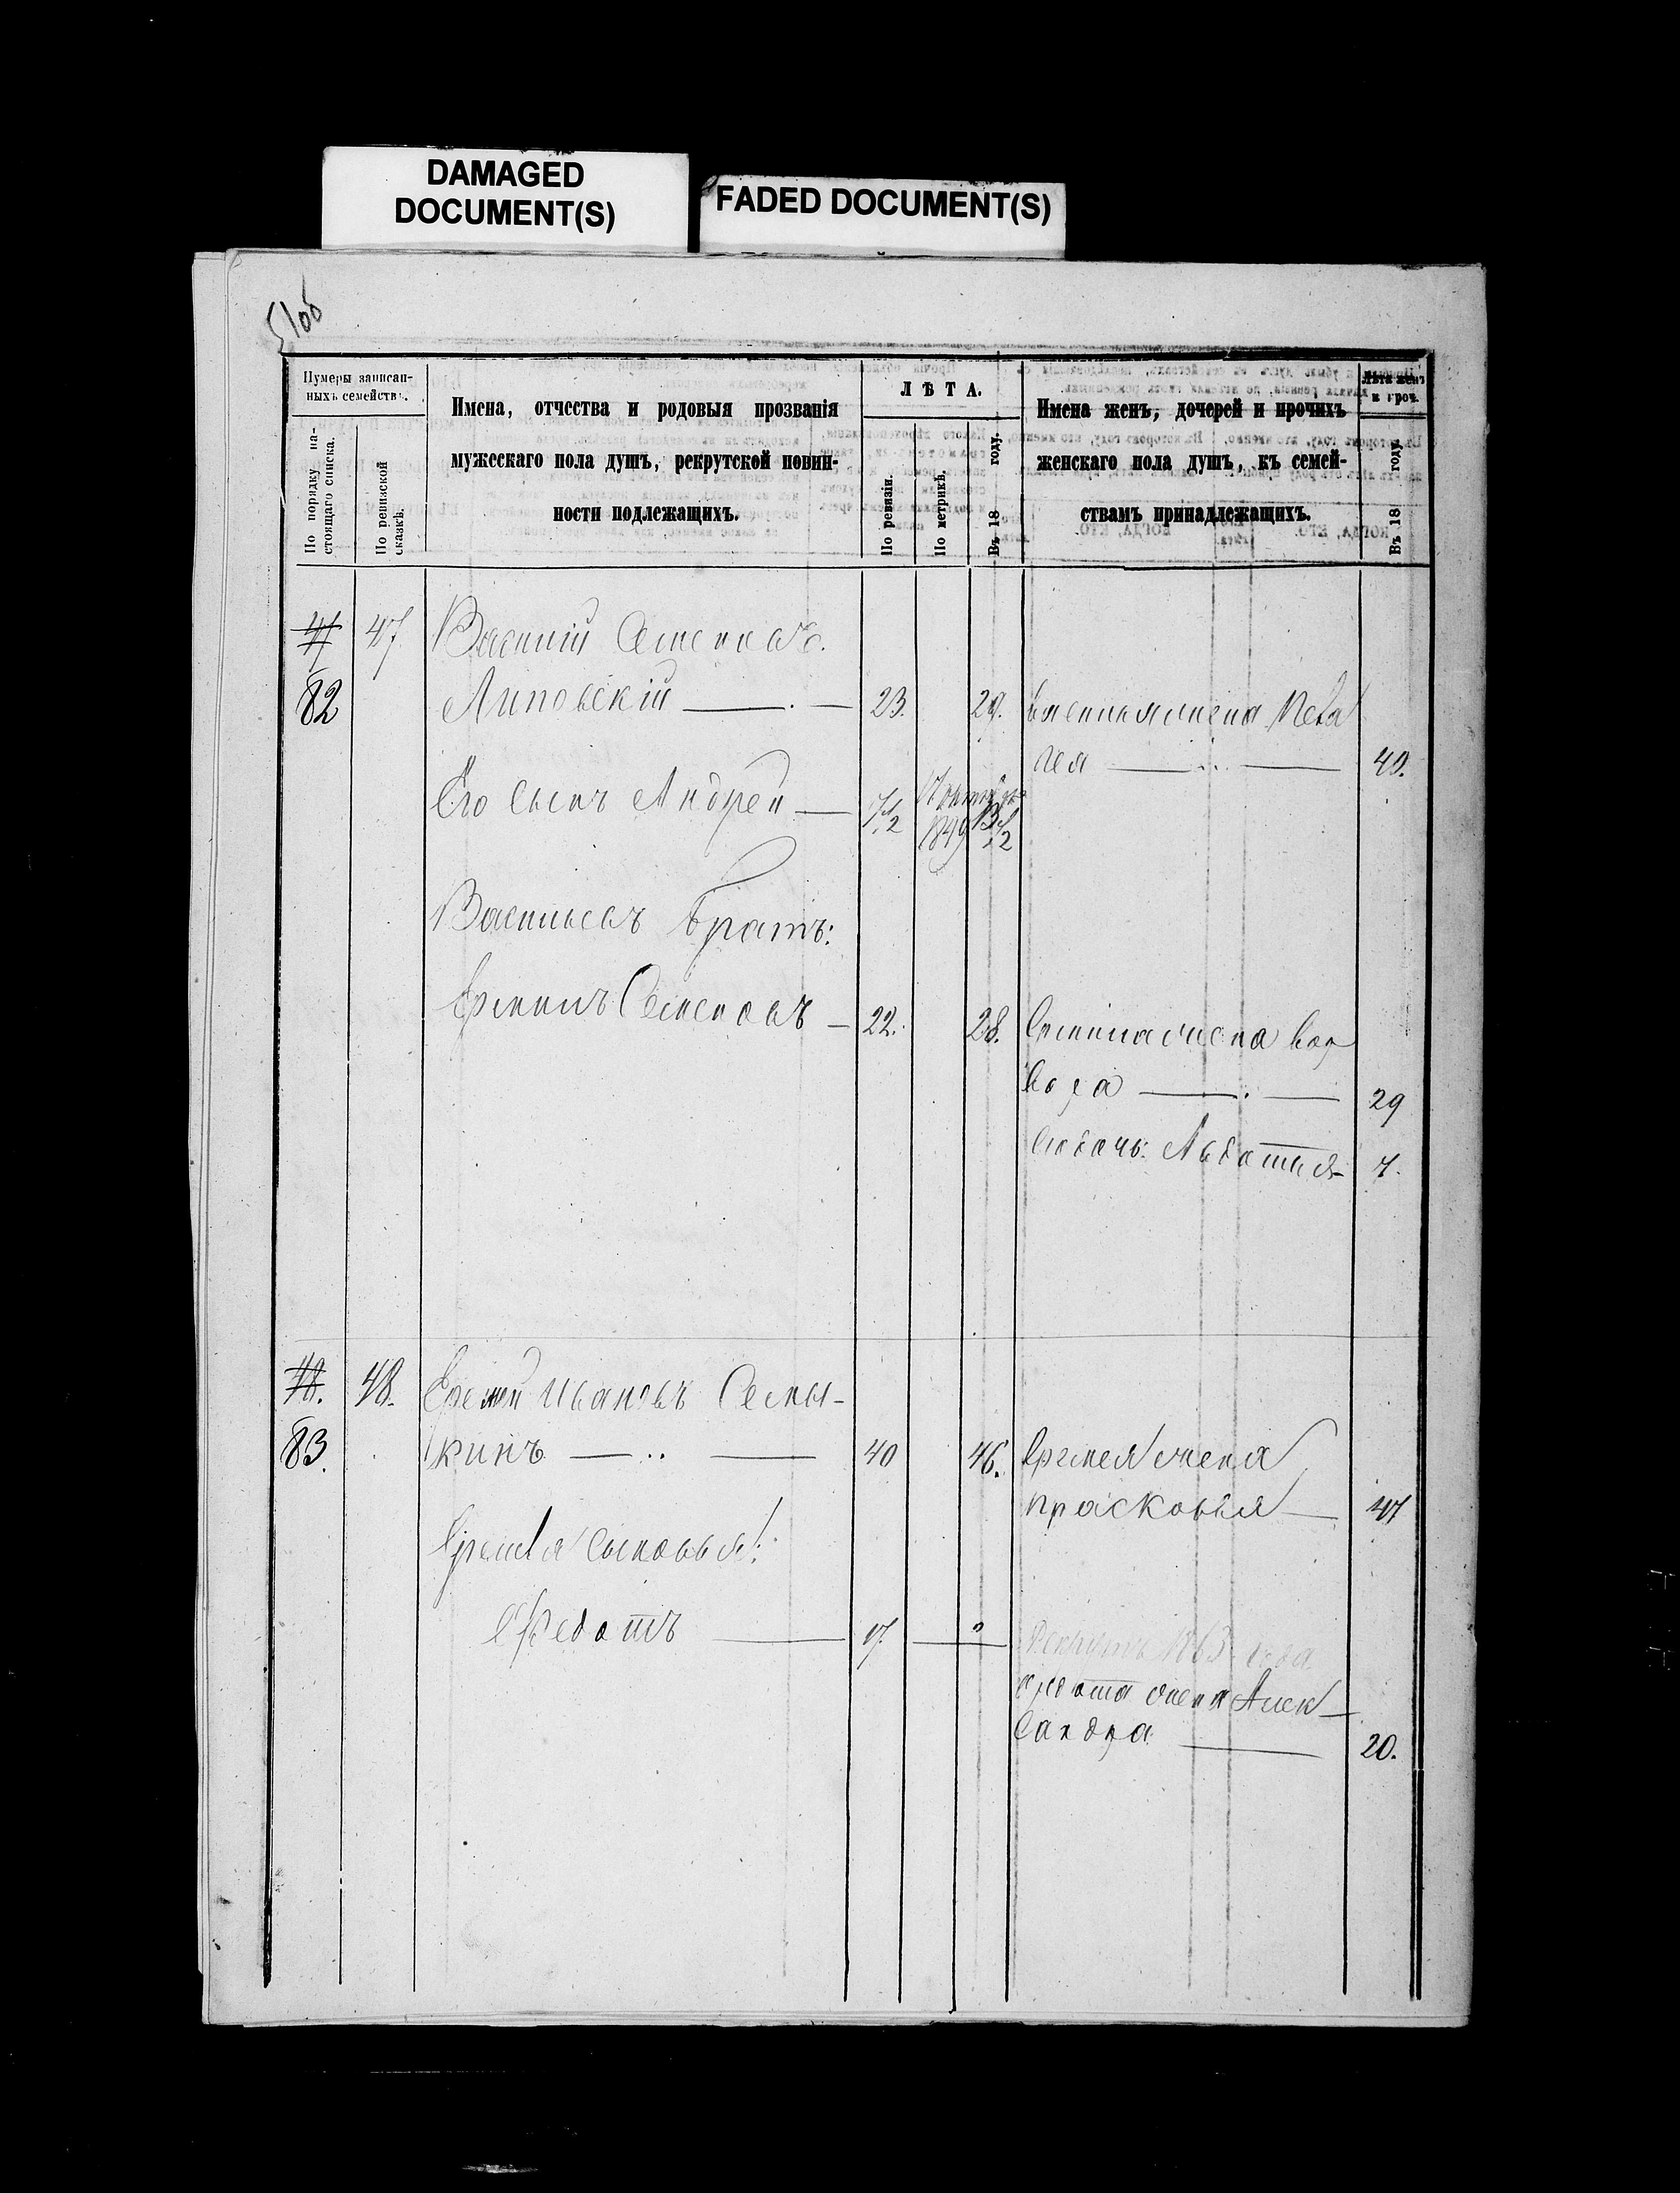 DAMAGED
DOCUMENT(S)
FADED DOCUMENT(S)
51об
Нумеры записан-
ныхъ семействъ.
По порядку на-
стоящаго списка.
По ревизской
сказкѣ.
Имена, отчества и родовыя прозванія
мужескаго пола душъ, рекрутской повин-
ности подлежащихъ.
ЛѢТА.
По ревизіи.
По метрикѣ.
Въ 18 году.
Имена женъ, дочерей и прочихъ
женскаго пола душъ, къ семей-
ствамъ принадлежащихъ.
Лѣта женъ
и проч.
Въ 18 году.
47 47 Василій Семеновъ
82 Липовскій 23. 29. Васильяжена Пела
гея 40.
Его сынъ Андрей 7 1/2 1849 13 1/2
Васильевъ братъ:
Еремилъ Семеновъ 22. 28. жена Вар
вара 29
Ево дочь: 7.
48. 48. Еремей Ивановъ Семы-
83. кинъ 40 46. Еремея жена
Прасковья 47
Еремея сыновья:
Федотъ 17. "
Рекрутъ 1863 года
Федота жена Алек
сандра 20.